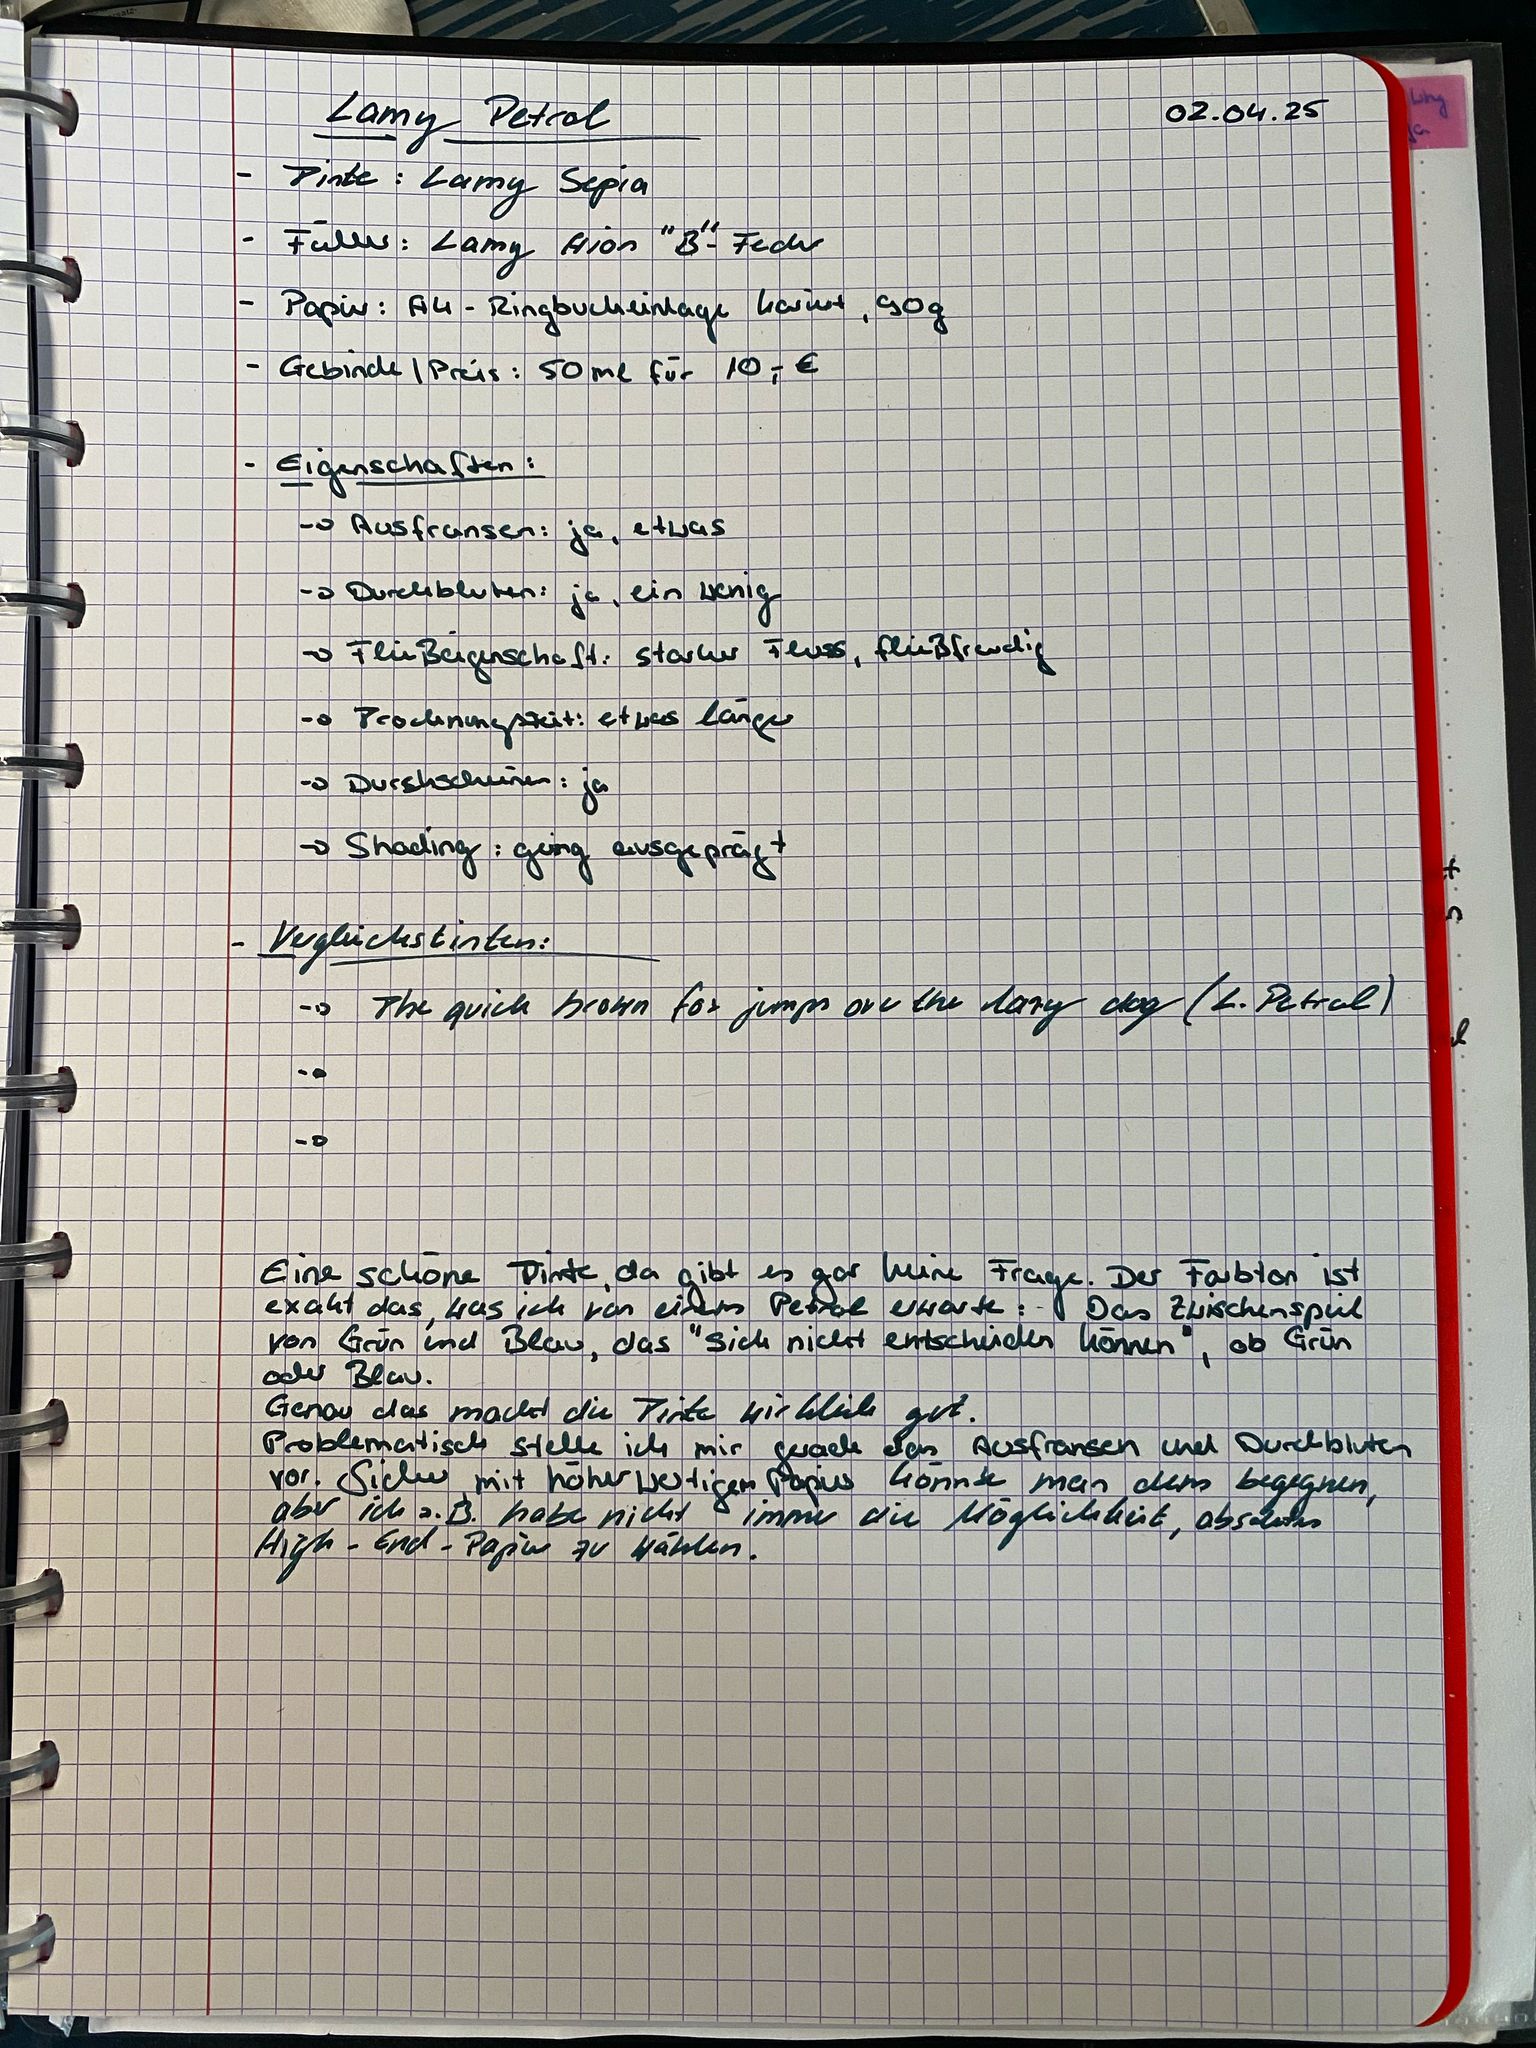 Lamy Petrol 02.04.25
- Tinte: Lamy Sepia
- Füller: Lamy Aion "B"-Feder
- Papier: A4-Ringbucheinlage kariert, 90g
- Gebinde/Preis: 50ml für 10,- €
- Eigenschaften:
→ Ausfransen: ja, etwas
→ Durchbluten: ja, ein wenig
→ Fließeigenschaft: starker Fluss, fließfreudig
→ Trocknungszeit: etwas länger
→ Durshscheinen: ja
→ Shading: gering ausgeprägt
- Vergleichstinten:
→ The quick brown fox jumps over the lazy dog (L. Petrol)
→
→
Eine schöne Tinte, da gibt es gar keine Frage. Der Farbton ist
exakt das, was ich von einem Petrol erwarte: Das Zwischenspiel
von Grün und Blau, das "Sich nicht entscheiden können", ob Grün
oder Blau.
Genau das macht die Tinte wirklich gut.
Problematisch stelle ich mir gerade das Ausfransen und Durchbluten
vor. Sicher, mit höherwertigem Papier könnte man dem begegnen,
aber ich z.B. habe nicht immer die Möglichkeit, absolutes
High-End-Papier zu wählen.